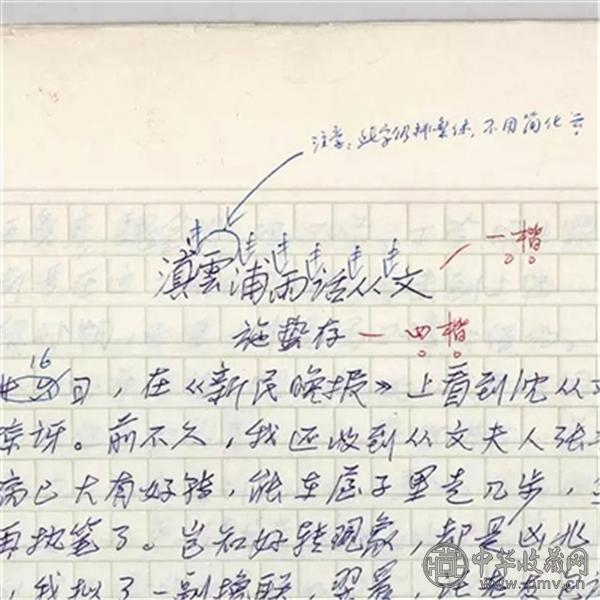 注意：此字仍排繁体，不用简化字
滇雲浦雨话从文
一楷
施蛰存
四楷
16
日，在《新民晚报》上看到沈从文
惊讶。前不久，我还收到从文夫人张
病已大有好转，能在屋子里走几步，
再执笔了。岂知好转现象，都是凶兆
，我拟了一副挽联，翌晨，
中华收藏网
www.mmv.cn